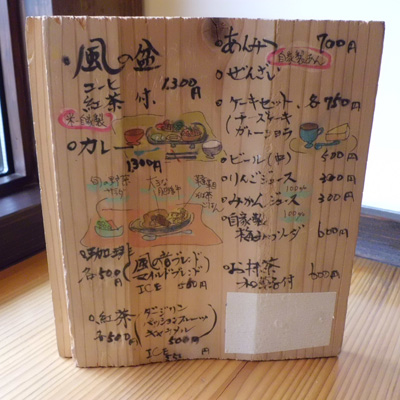 風の盆
コーヒー
紅茶 付 1300円
カレー
1300円
旬の野菜
珈琲
各500円
風の音ブレンド
マイルドブレンド
ICE
紅茶
各500円
ダージリン
500円
ICE
あんみつ 700円
自家製あん
ぜんざい
ケーキセット 各750円
チーズケーキ
ガトーショコラ
ビール(中) 500円
りんごジュース 300円
100%
みかんジュース 300円
100%
自家製
600円
お抹茶
和菓子付 600円